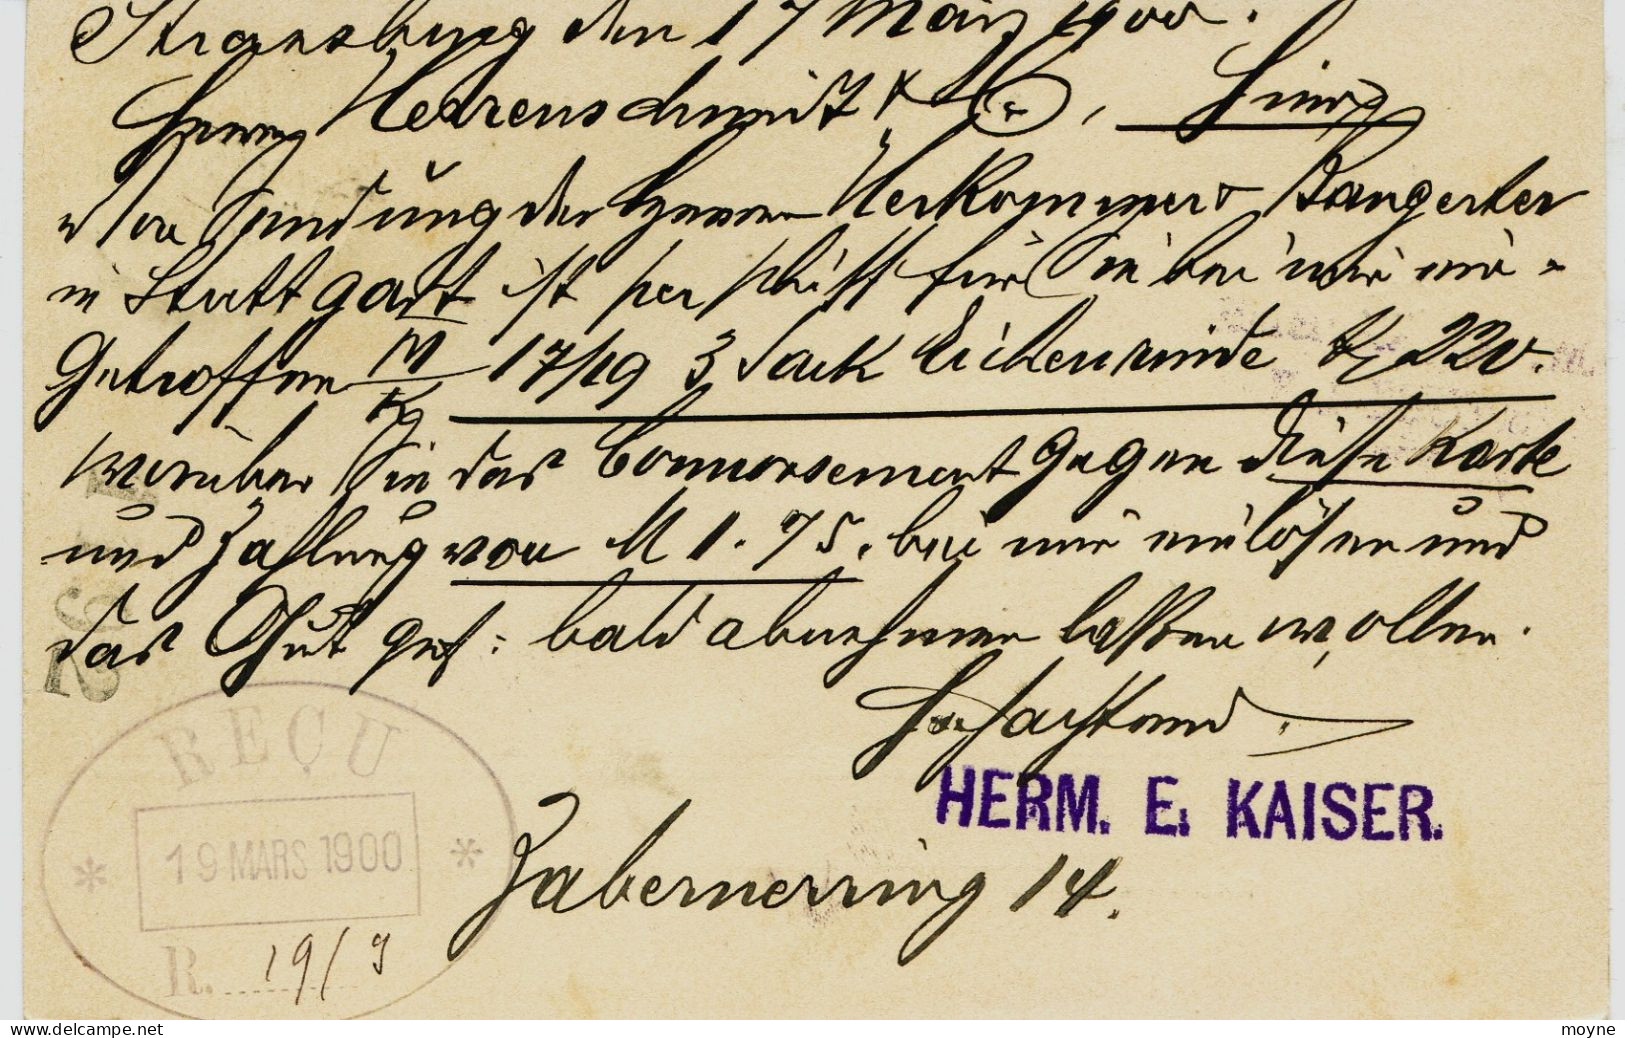 Strassburg den 17 März 1900.
Herren Herrenschmidt & Co, hier
Von Sendung der Herren Herkommer & Bangerter
in Stuttgart ist per Schiff für Sie bei mir ein-
Getroffen M/Kg 17/19 3 Sack Eichenrinde Kg 220.
worüber Sie das Connossement gegen diese Karte
und Zahlung von M 1.75. bei mir einlösen und
das Gut gef: bald abnehmen lassen wollen.
Hochachtend.
HERM. E. KAISER.
Zabernerring 14.
REÇU
* 19 MARS 1900 *
R. 19/3
delcampe.net
moyne